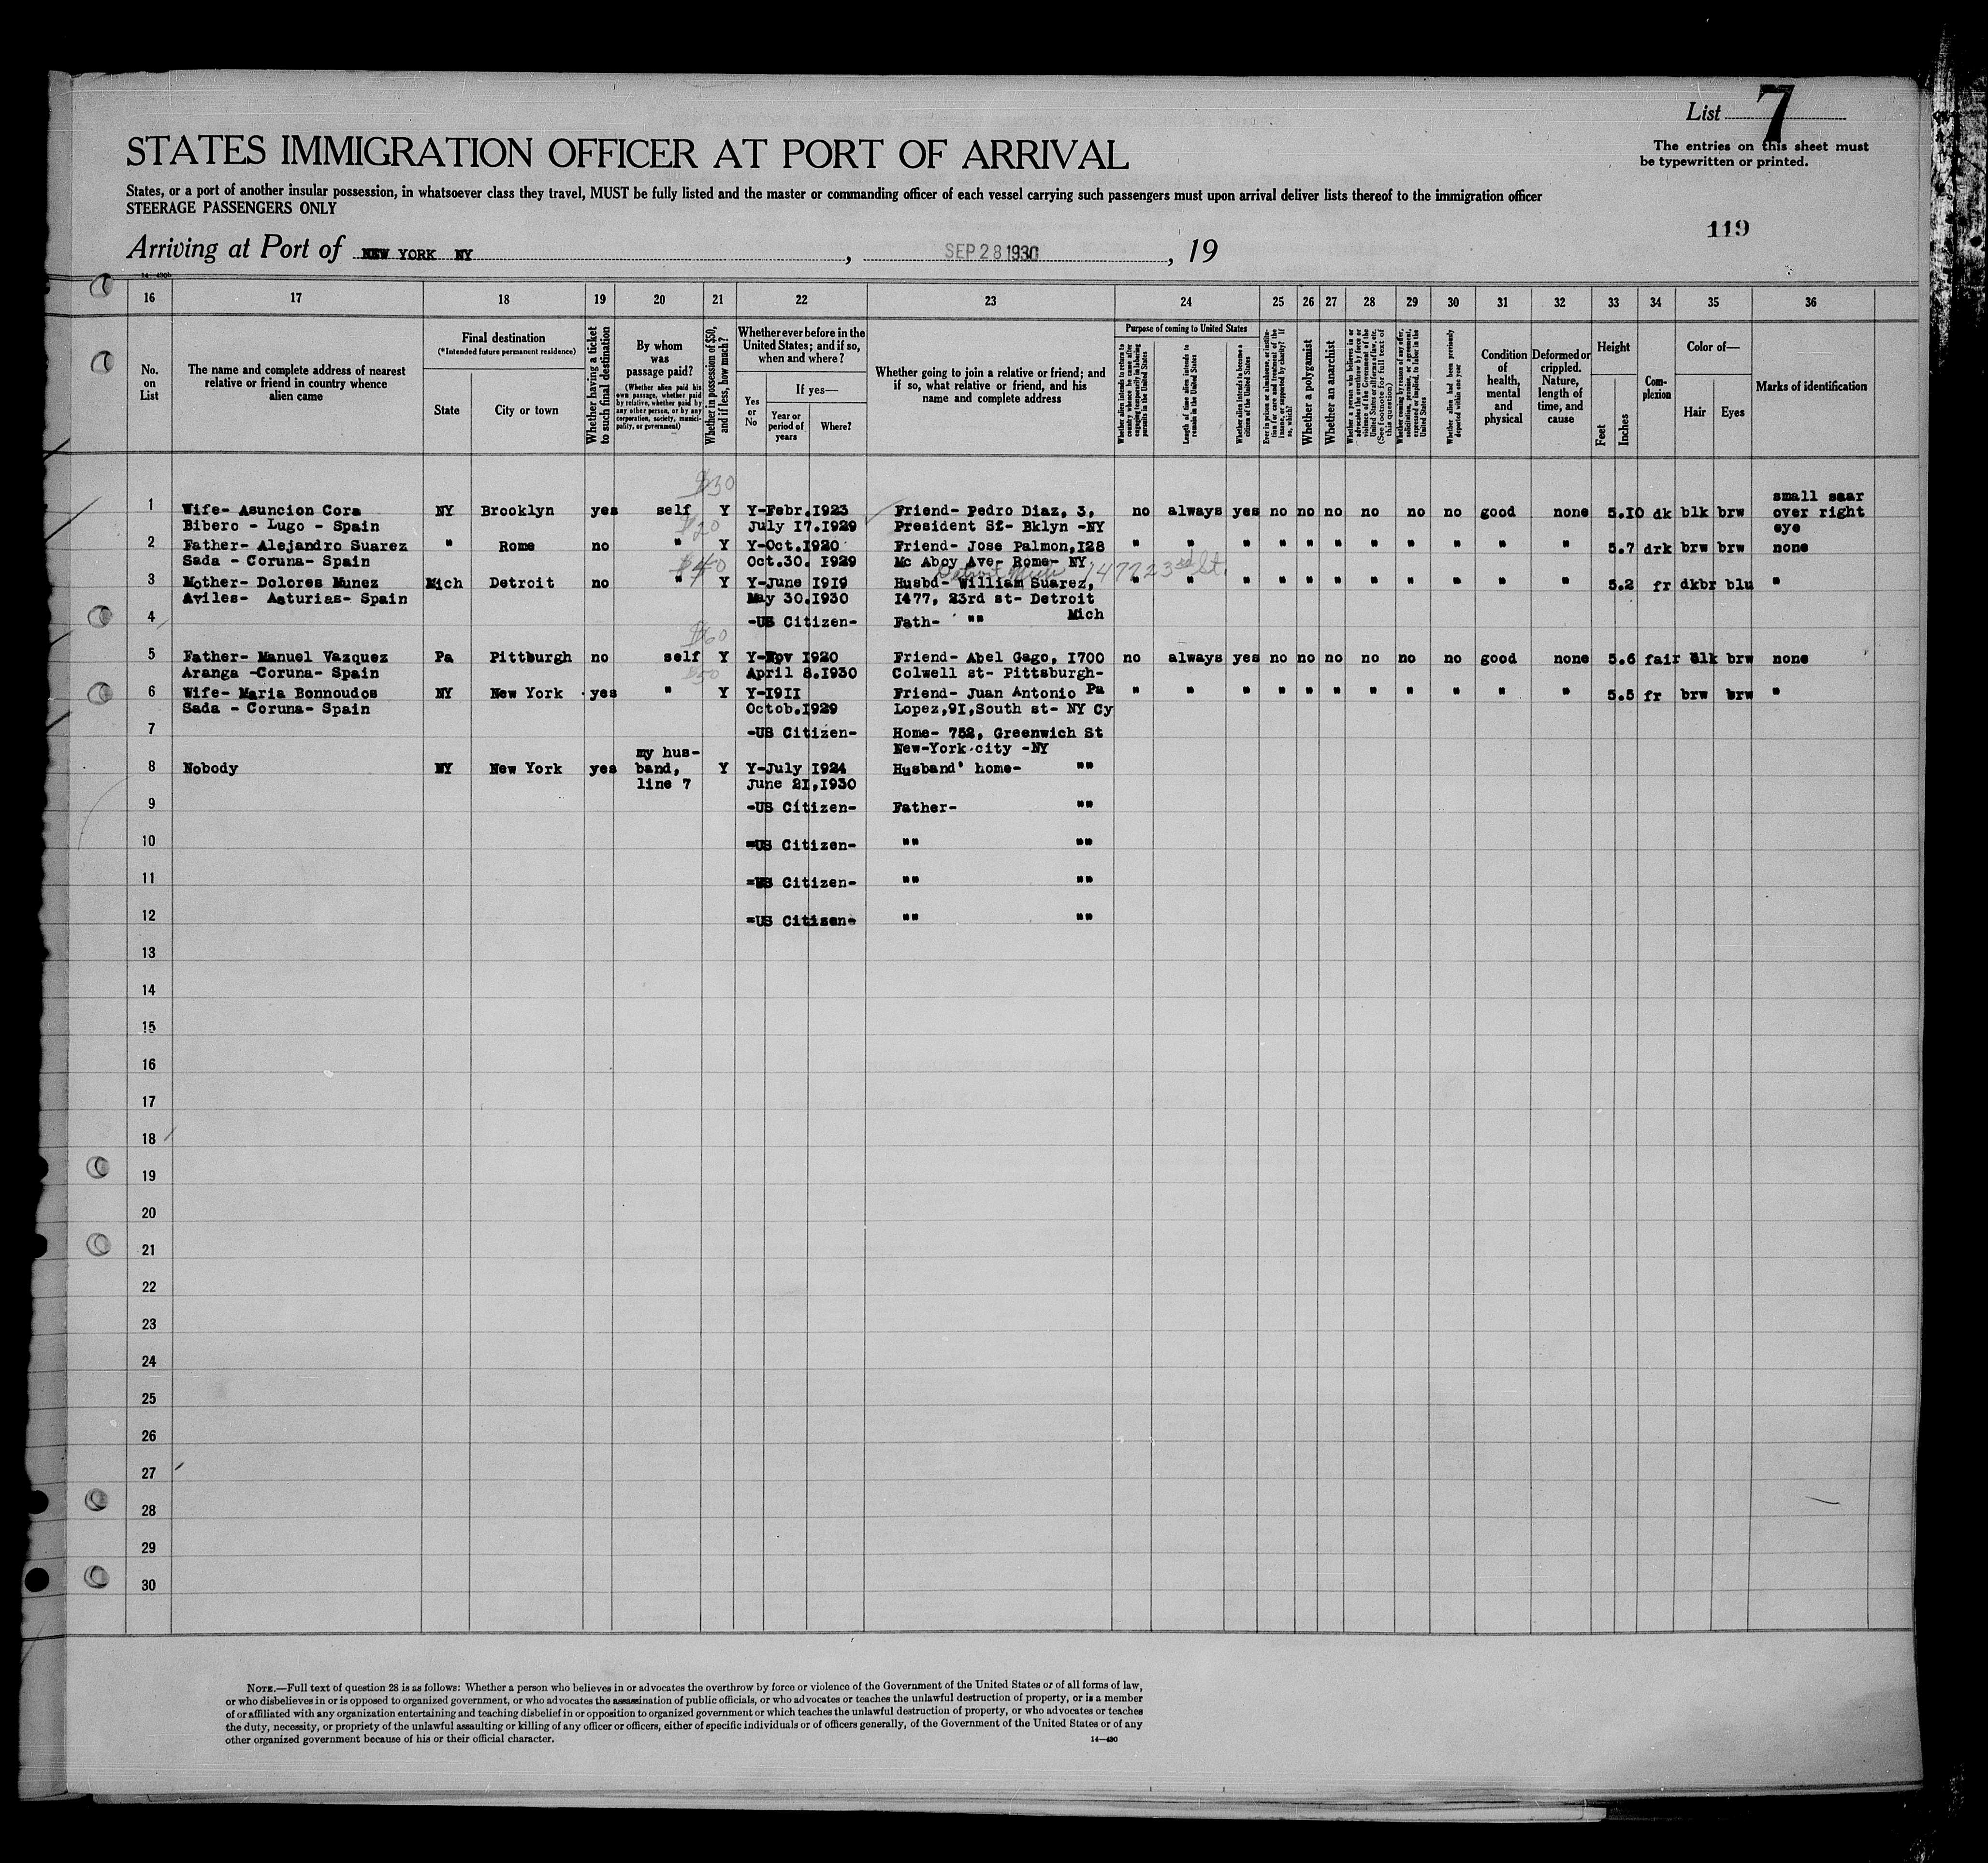 List 7
The entries on this sheet must
be typewritten or printed.
STATES IMMIGRATION OFFICER AT PORT OF ARRIVAL
States, or a port of another insular possession, in whatsoever class they travel, MUST be fully listed and the master or commanding officer of each vessel carrying such passengers must upon arrival deliver lists thereof to the immigration officer
STEERAGE PASSENGERS ONLY
119
Arriving at Port of NEW YORK NY , SEP 28 1930 , 19
16 17 18 19 20 21 22 23 24 25 26 27 28 29 30 31 32 33 34 35 36
No. on List
The name and complete address of nearest relative or friend in country whence alien came
Final destination
(*Intended future permanent residence)
State
City or town
Whether having a ticket to such final destination
By whom was passage paid?
(Whether alien paid his own passage, whether paid by relative, whether paid by any other person, or by any corporation, society, municipality, or government)
Whether in possession of $50, and if less, how much?
Whether ever before in the United States; and if so, when and where?
Yes or No
If yes—
Year or period of years
Where?
Whether going to join a relative or friend; and if so, what relative or friend, and his name and complete address
Purpose of coming to United States
Whether alien intends to return to country whence he came after engaging temporarily in laboring pursuits in the United States
Length of time alien intends to remain in the United States
Whether alien intends to become a citizen of the United States
Ever in prison or almshouse, or institution for care and treatment of the insane, or supported by charity? If so, which?
Whether a polygamist
Whether an anarchist
Whether a person who believes in or advocates the overthrow by force or violence of the Government of the United States or all forms of law, etc. (See footnote for full text of this question)
Whether coming by reason of any offer, solicitation, promise, or agreement, expressed or implied, to labor in the United States
Whether alien had been previously deported within one year
Condition of health, mental and physical
Deformed or crippled. Nature, length of time, and cause
Height
Feet
Inches
Complexion
Color of—
Hair
Eyes
Marks of identification
$30
small saar
1 Wife- Asuncion Cora NY Brooklyn yes self Y Y-Febr.1923 Friend- Pedro Diaz, 3, no always yes no no no no no no good none 5.10 dk blk brw over right
Bibero - Lugo - Spain $20 July 17.1929 President St- Bklyn -NY eye
2 Father- Alejandro Suarez " Rome no " Y Y-Oct.1920 Friend- Jose Palmon,128 " " " " " " " " " " " 5.7 drk brw brw none
Sada - Coruna- Spain $40 Oct.30. 1929 Mc Aboy Ave- Rome- NY
Detroit Mich 1477 23rd St.
3 Mother- Dolores Munez Mich Detroit no " Y Y-June 1919 Husbd- William Suarez, " " " " " " " " " " " 5.2 fr dkbr blu "
Aviles- Asturias- Spain May 30.1930 1477, 23rd st- Detroit
4 -US Citizen- Fath- "" Mich
$60
5 Father- Manuel Vazquez Pa Pittburgh no self Y Y-Nov 1920 Friend- Abel Gago, 1700 no always yes no no no no no no good none 5.6 fair blk brw none
Aranga -Coruna- Spain $50 April 8.1930 Colwell st- Pittsburgh-
6 Wife- Maria Bonnoudos NY New York yes " Y Y-1911 Friend- Juan Antonio Pa " " " " " " " " " " " 5.5 fr brw brw "
Sada - Coruna- Spain Octob.1929 Lopez,91,South st- NY Cy
7 -US Citizen- Home- 752, Greenwich St
my hus- New-York city -NY
8 Nobody NY New York yes band, Y Y-July 1924 Husband' home- ""
line 7 June 21,1930
9 -US Citizen- Father- ""
10 =US Citizen- "" ""
11 =US Citizen- "" ""
12 =US Citizen- "" ""
13
14
15
16
17
18
19
20
21
22
23
24
25
26
27
28
29
30
NOTE.—Full text of question 28 is as follows: Whether a person who believes in or advocates the overthrow by force or violence of the Government of the United States or of all forms of law,
or who disbelieves in or is opposed to organized government, or who advocates the assassination of public officials, or who advocates or teaches the unlawful destruction of property, or is a member
of or affiliated with any organization entertaining and teaching disbelief in or opposition to organized government or which teaches the unlawful destruction of property, or who advocates or teaches
the duty, necessity, or propriety of the unlawful assaulting or killing of any officer or officers, either of specific individuals or of officers generally, of the Government of the United States or of any
other organized government because of his or their official character.
14—430